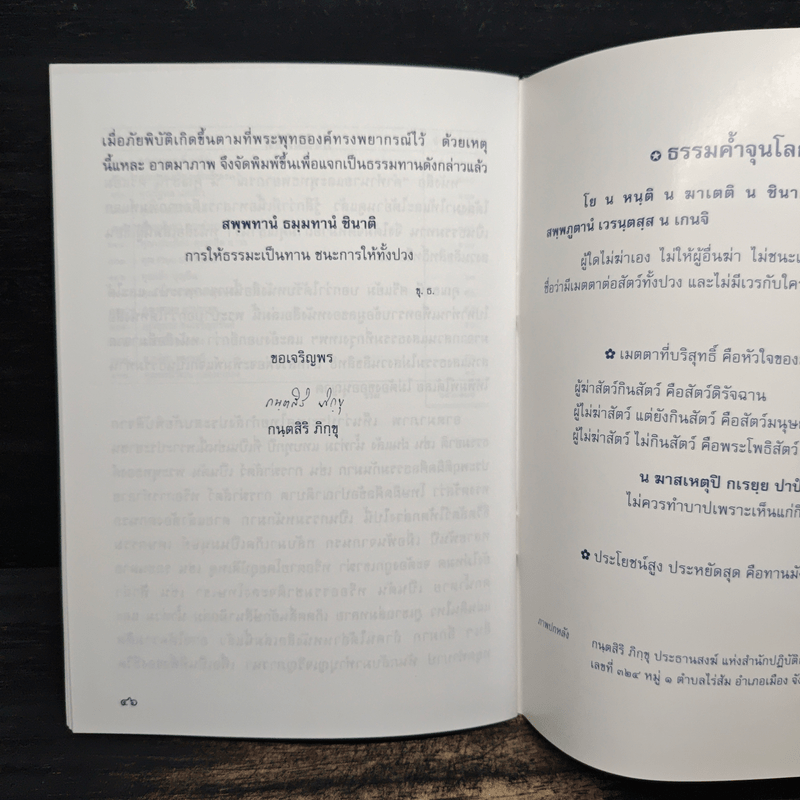 เมื่อภัยพิบัติเกิดขึ้นตามที่พระพุทธองค์ทรงพยากรณ์ไว้ ด้วยเหตุ
นี้แหละ อาตมาภาพ จึงจัดพิมพ์ขึ้นเพื่อแจกเป็นธรรมทานดังกล่าวแล้ว
สพฺพทานํ ธมฺมทานํ ชินาติ
การให้ธรรมะเป็นทาน ชนะการให้ทั้งปวง
ขุ. ธ.
ขอเจริญพร
กนฺตสิริ ภิกฺขุ
กนฺตสิริ ภิกฺขุ
๔๖
✪ ธรรมค้ำจุนโลก
โย น หนฺติ น ฆาเตติ น ชินา
สพฺพภูตานํ เวรนฺตสฺส น เกนจิ
ผู้ใดไม่ฆ่าเอง ไม่ให้ผู้อื่นฆ่า ไม่ชนะเ
ชื่อว่ามีเมตตาต่อสัตว์ทั้งปวง และไม่มีเวรกับใคร
✿ เมตตาที่บริสุทธิ์ คือหัวใจของ
ผู้ฆ่าสัตว์กินสัตว์ คือสัตว์ดิรัจฉาน
ผู้ไม่ฆ่าสัตว์ แต่ยังกินสัตว์ คือสัตว์มนุษย
ผู้ไม่ฆ่าสัตว์ ไม่กินสัตว์ คือพระโพธิสัตว์
น ฆาสเหตุปิ กเรยฺย ปาปํ
ไม่ควรทำบาปเพราะเห็นแก่กิ
✿ ประโยชน์สูง ประหยัดสุด คือทานมั
ภาพปกหลัง
กนฺตสิริ ภิกฺขุ ประธานสงฆ์ แห่งสำนักปฏิบัติ
เลขที่ ๓๒๔ หมู่ ๑ ตำบลไร่ส้ม อำเภอเมือง จั